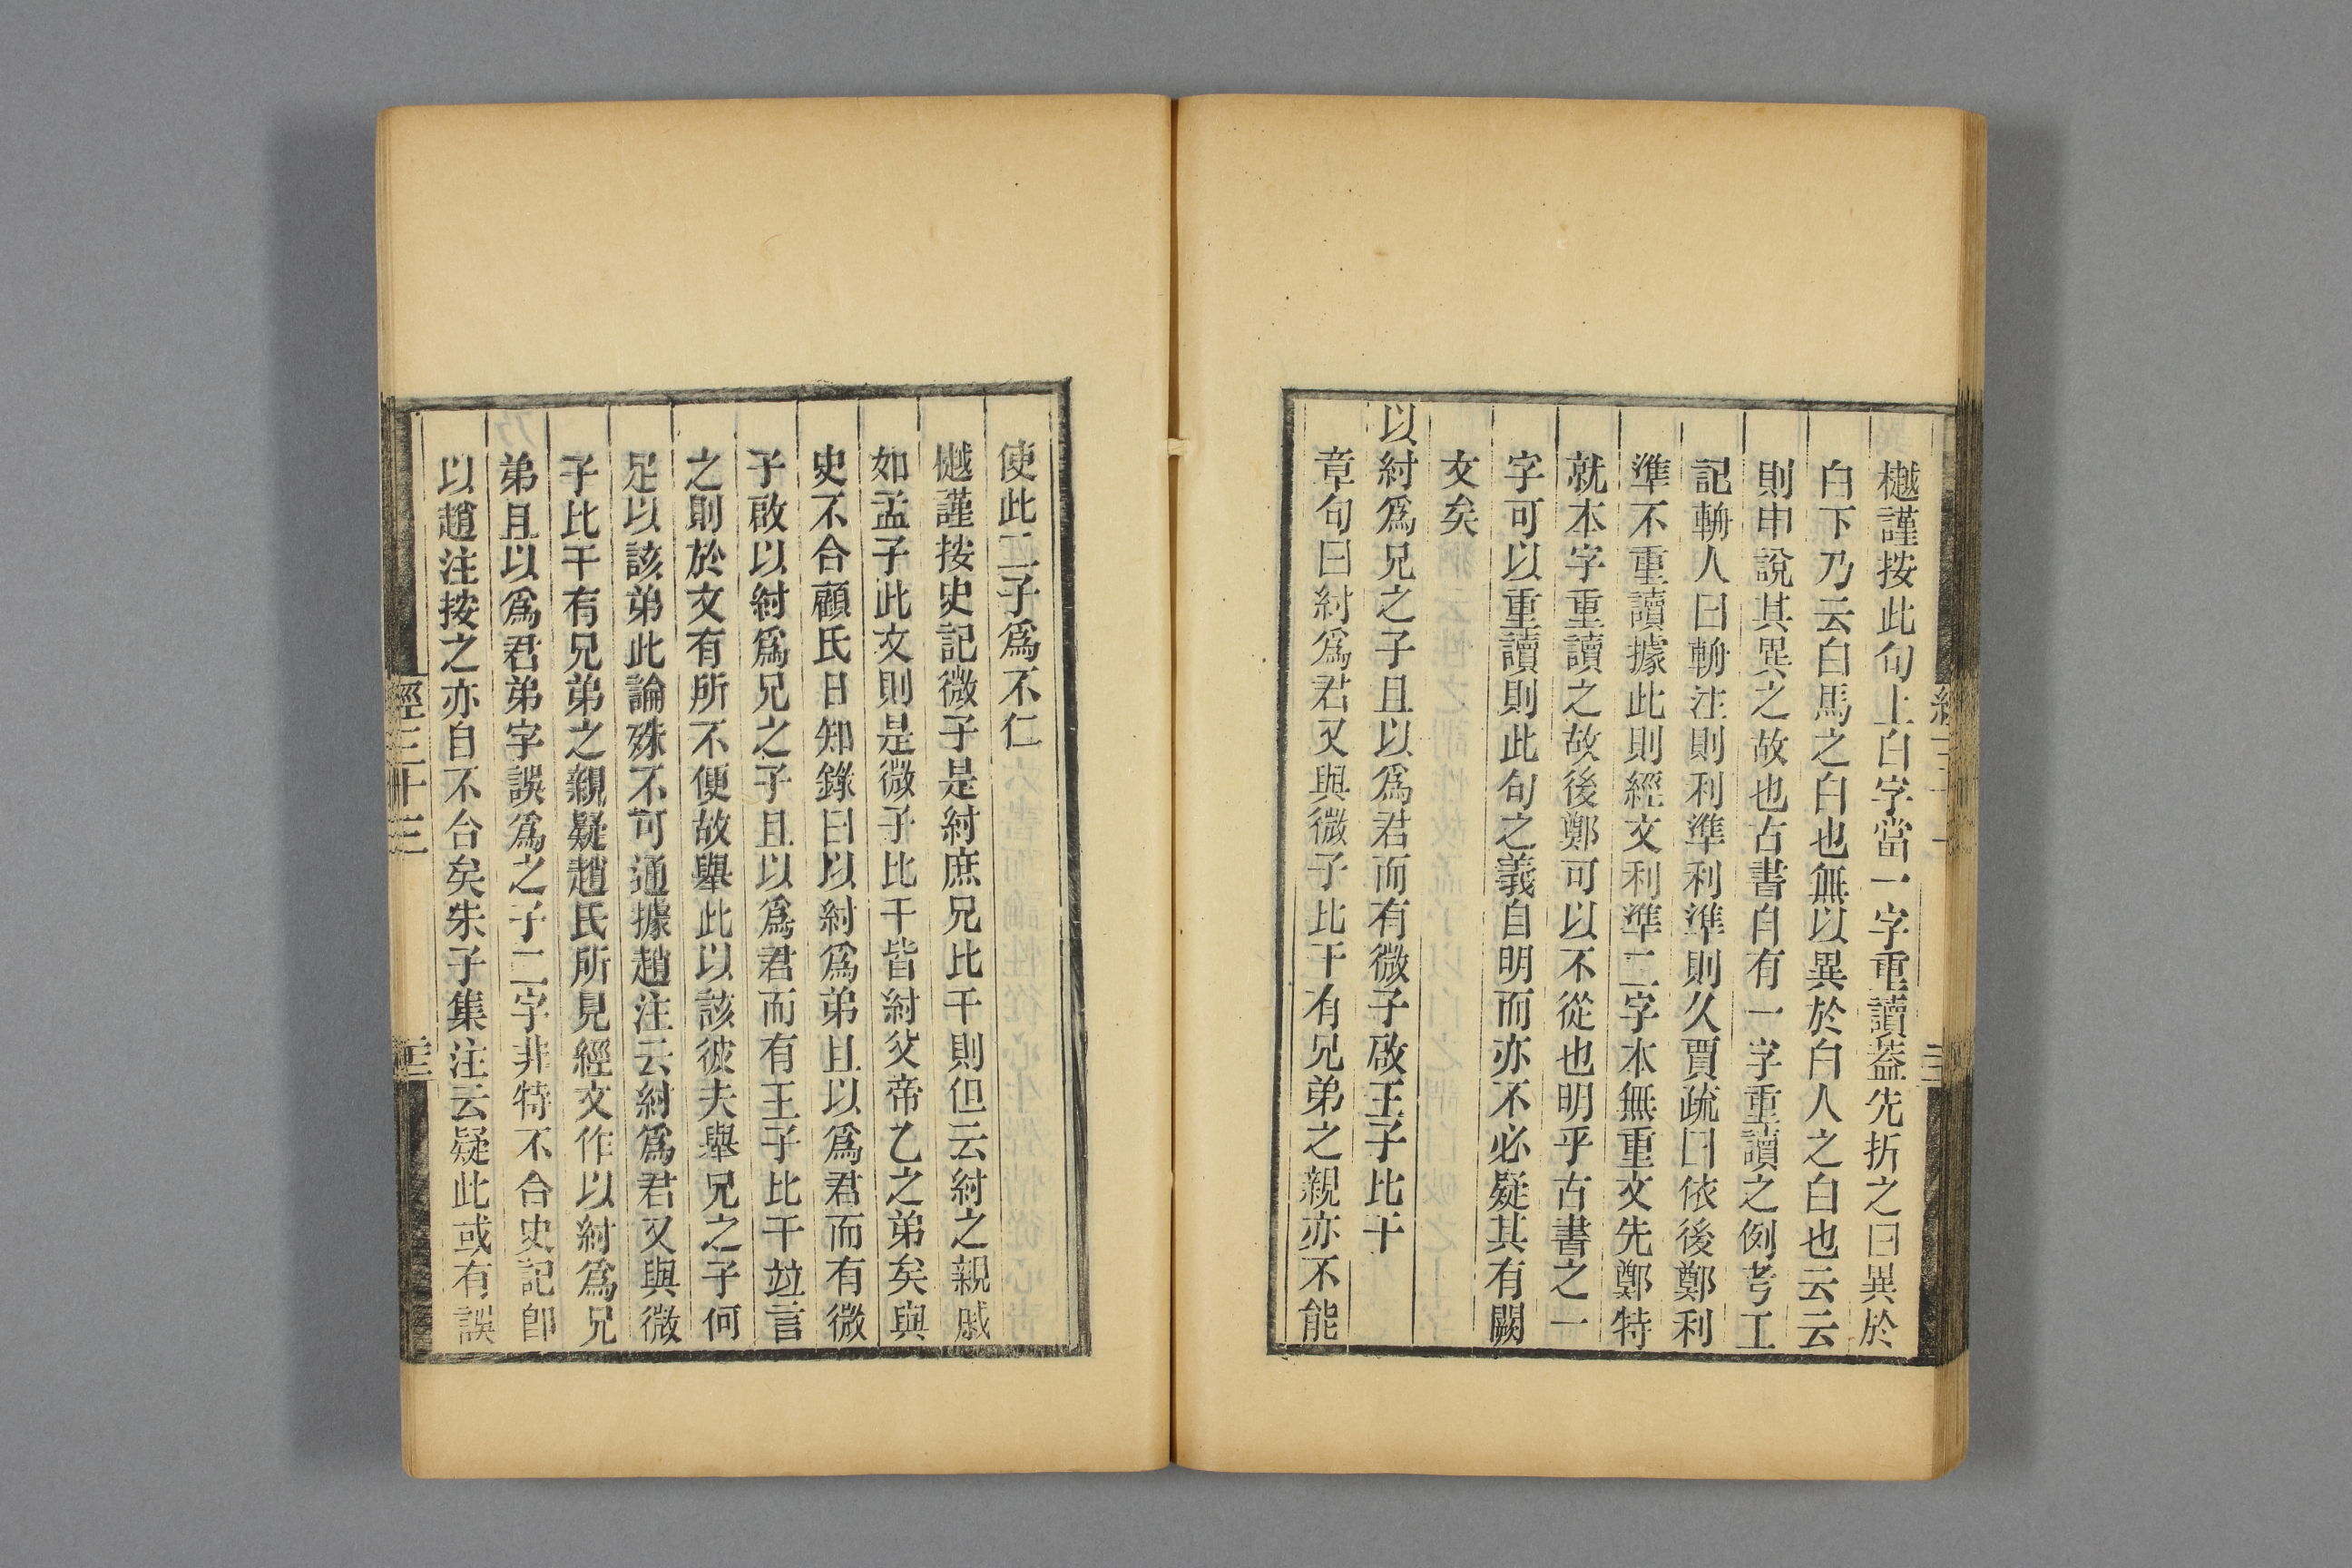 樾謹按此句上白字當一字重讀葢先折之曰異於
白下乃云白馬之白也無以異於白人之白也云云
則申說其異之故也古書自有一字重讀之例考工
記輈人曰輈注則利準利準則久賈疏曰依後鄭利
準不重讀據此則經文利準二字本無重文先鄭特
就本字重讀之故後鄭可以不從也明乎古書之一
字可以重讀則此句之義自明而亦不必疑其有闕
文矣
以紂爲兄之子且以爲君而有微子啟王子比干
章句曰紂爲君又與微子比干有兄弟之親亦不能
使此二子爲不仁
樾謹按史記微子是紂庶兄比干則但云紂之親戚
如孟子此文則是微子比干皆紂父帝乙之弟矣與
史不合顧氏日知錄曰以紂爲弟且以爲君而有微
子啟以紂爲兄之子且以爲君而有王子比干竝言
之則於文有所不便故舉此以該彼夫舉兄之子何
足以該弟此論殊不可通據趙注云紂爲君又與微
子比干有兄弟之親疑趙氏所見經文作以紂爲兄
弟且以爲君弟字誤爲之子二字非特不合史記卽
以趙注按之亦自不合矣朱子集注云疑此或有誤
經三十三